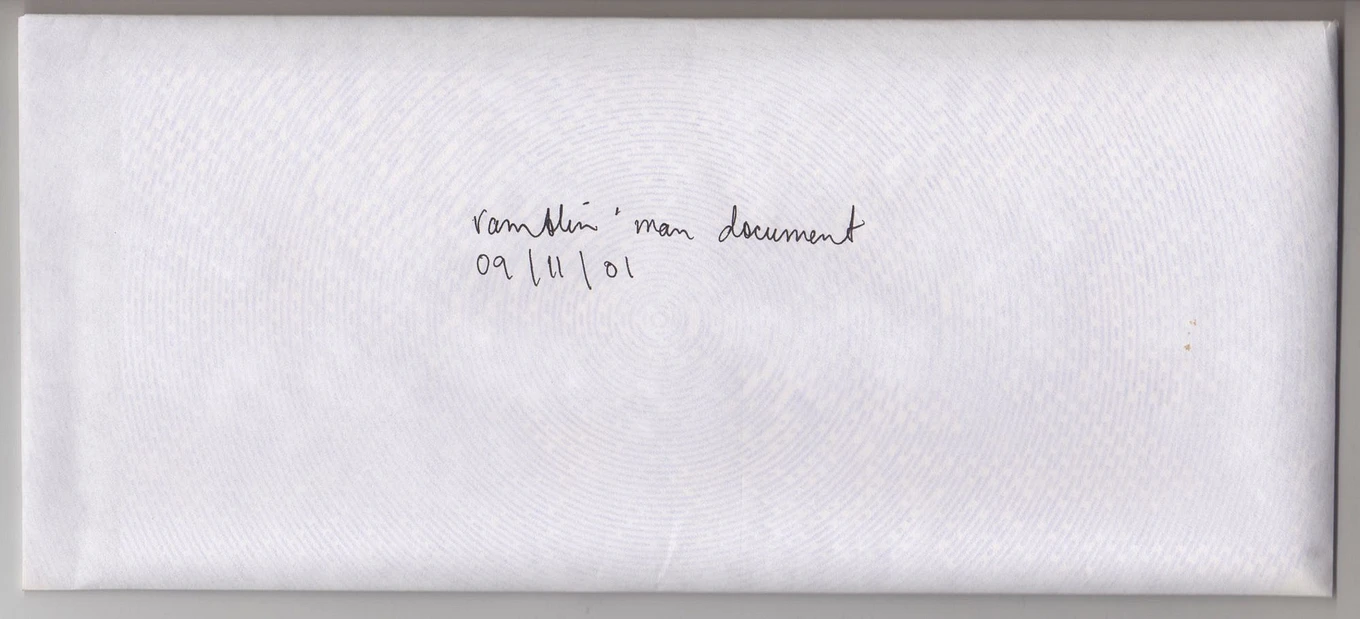 ramblin' man document
09/11/01